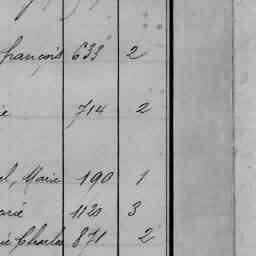 françois 633 2
ie 714 2
el, Marie 190 1
arie 1120 3
ie Charles 871 2